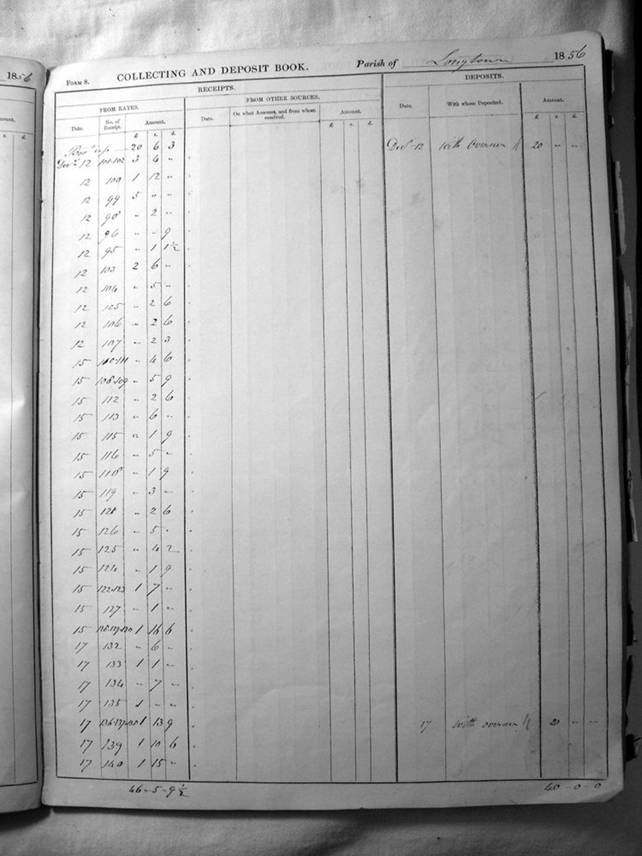 1856
FORM 8. COLLECTING AND DEPOSIT BOOK. Parish of Longtown 1856
RECEIPTS. DEPOSITS.
FROM RATES. FROM OTHER SOURCES.
Date. No. of Receipt. Amount. Date. On what Account, and from whom received. Amount. Date. With whom Deposited. Amount.
£ s. d. £ s. d. £ s. d.
20 6 3
12 101-102 3 4 " 12 With Overseer 20 " "
12 100 1 12 "
12 99 5 " "
12 98 " 2 "
12 96 " " 9
12 95 " 1 1½
12 103 2 6 "
12 104 " 5 "
12 105 " 2 6
12 106 " 2 6
12 107 " 2 3
15 110-111 " 4 6
15 108-109 " 5 9
15 112 " 2 6
15 113 " 6 "
15 115 " 1 9
15 116 " 5 "
15 118 " 1 9
15 119 " 3 "
15 " 2 6
15 126 " 5 "
15 125 " 4 2
15 124 " 1 9
15 122-123 1 7 "
15 127 " 1 "
15 1 16 6
17 132 " 6 "
17 133 1 1 "
17 134 " 7 "
17 135 1 " "
17 1 13 9 17 With overseer 20 " "
17 139 1 10 6
17 140 1 15 "
46-5-9½ 40-0-0